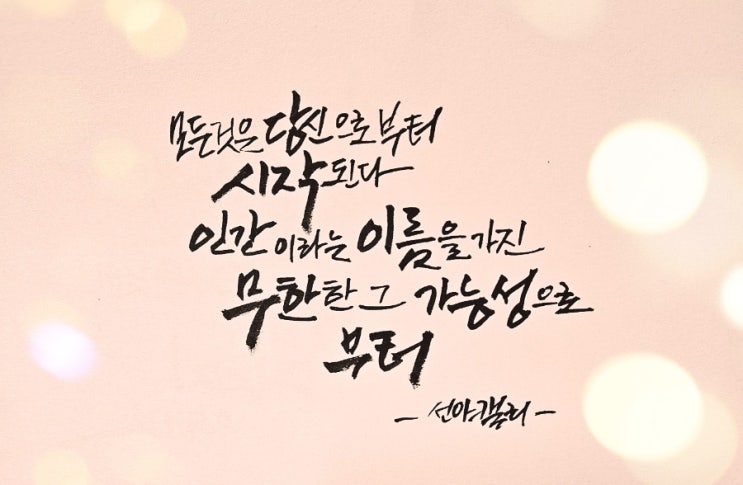 모든것은 당신으로부터
시작된다
인간이라는 이름을 가진
무한한 그 가능성으로
부터
- 선아갤러리 -